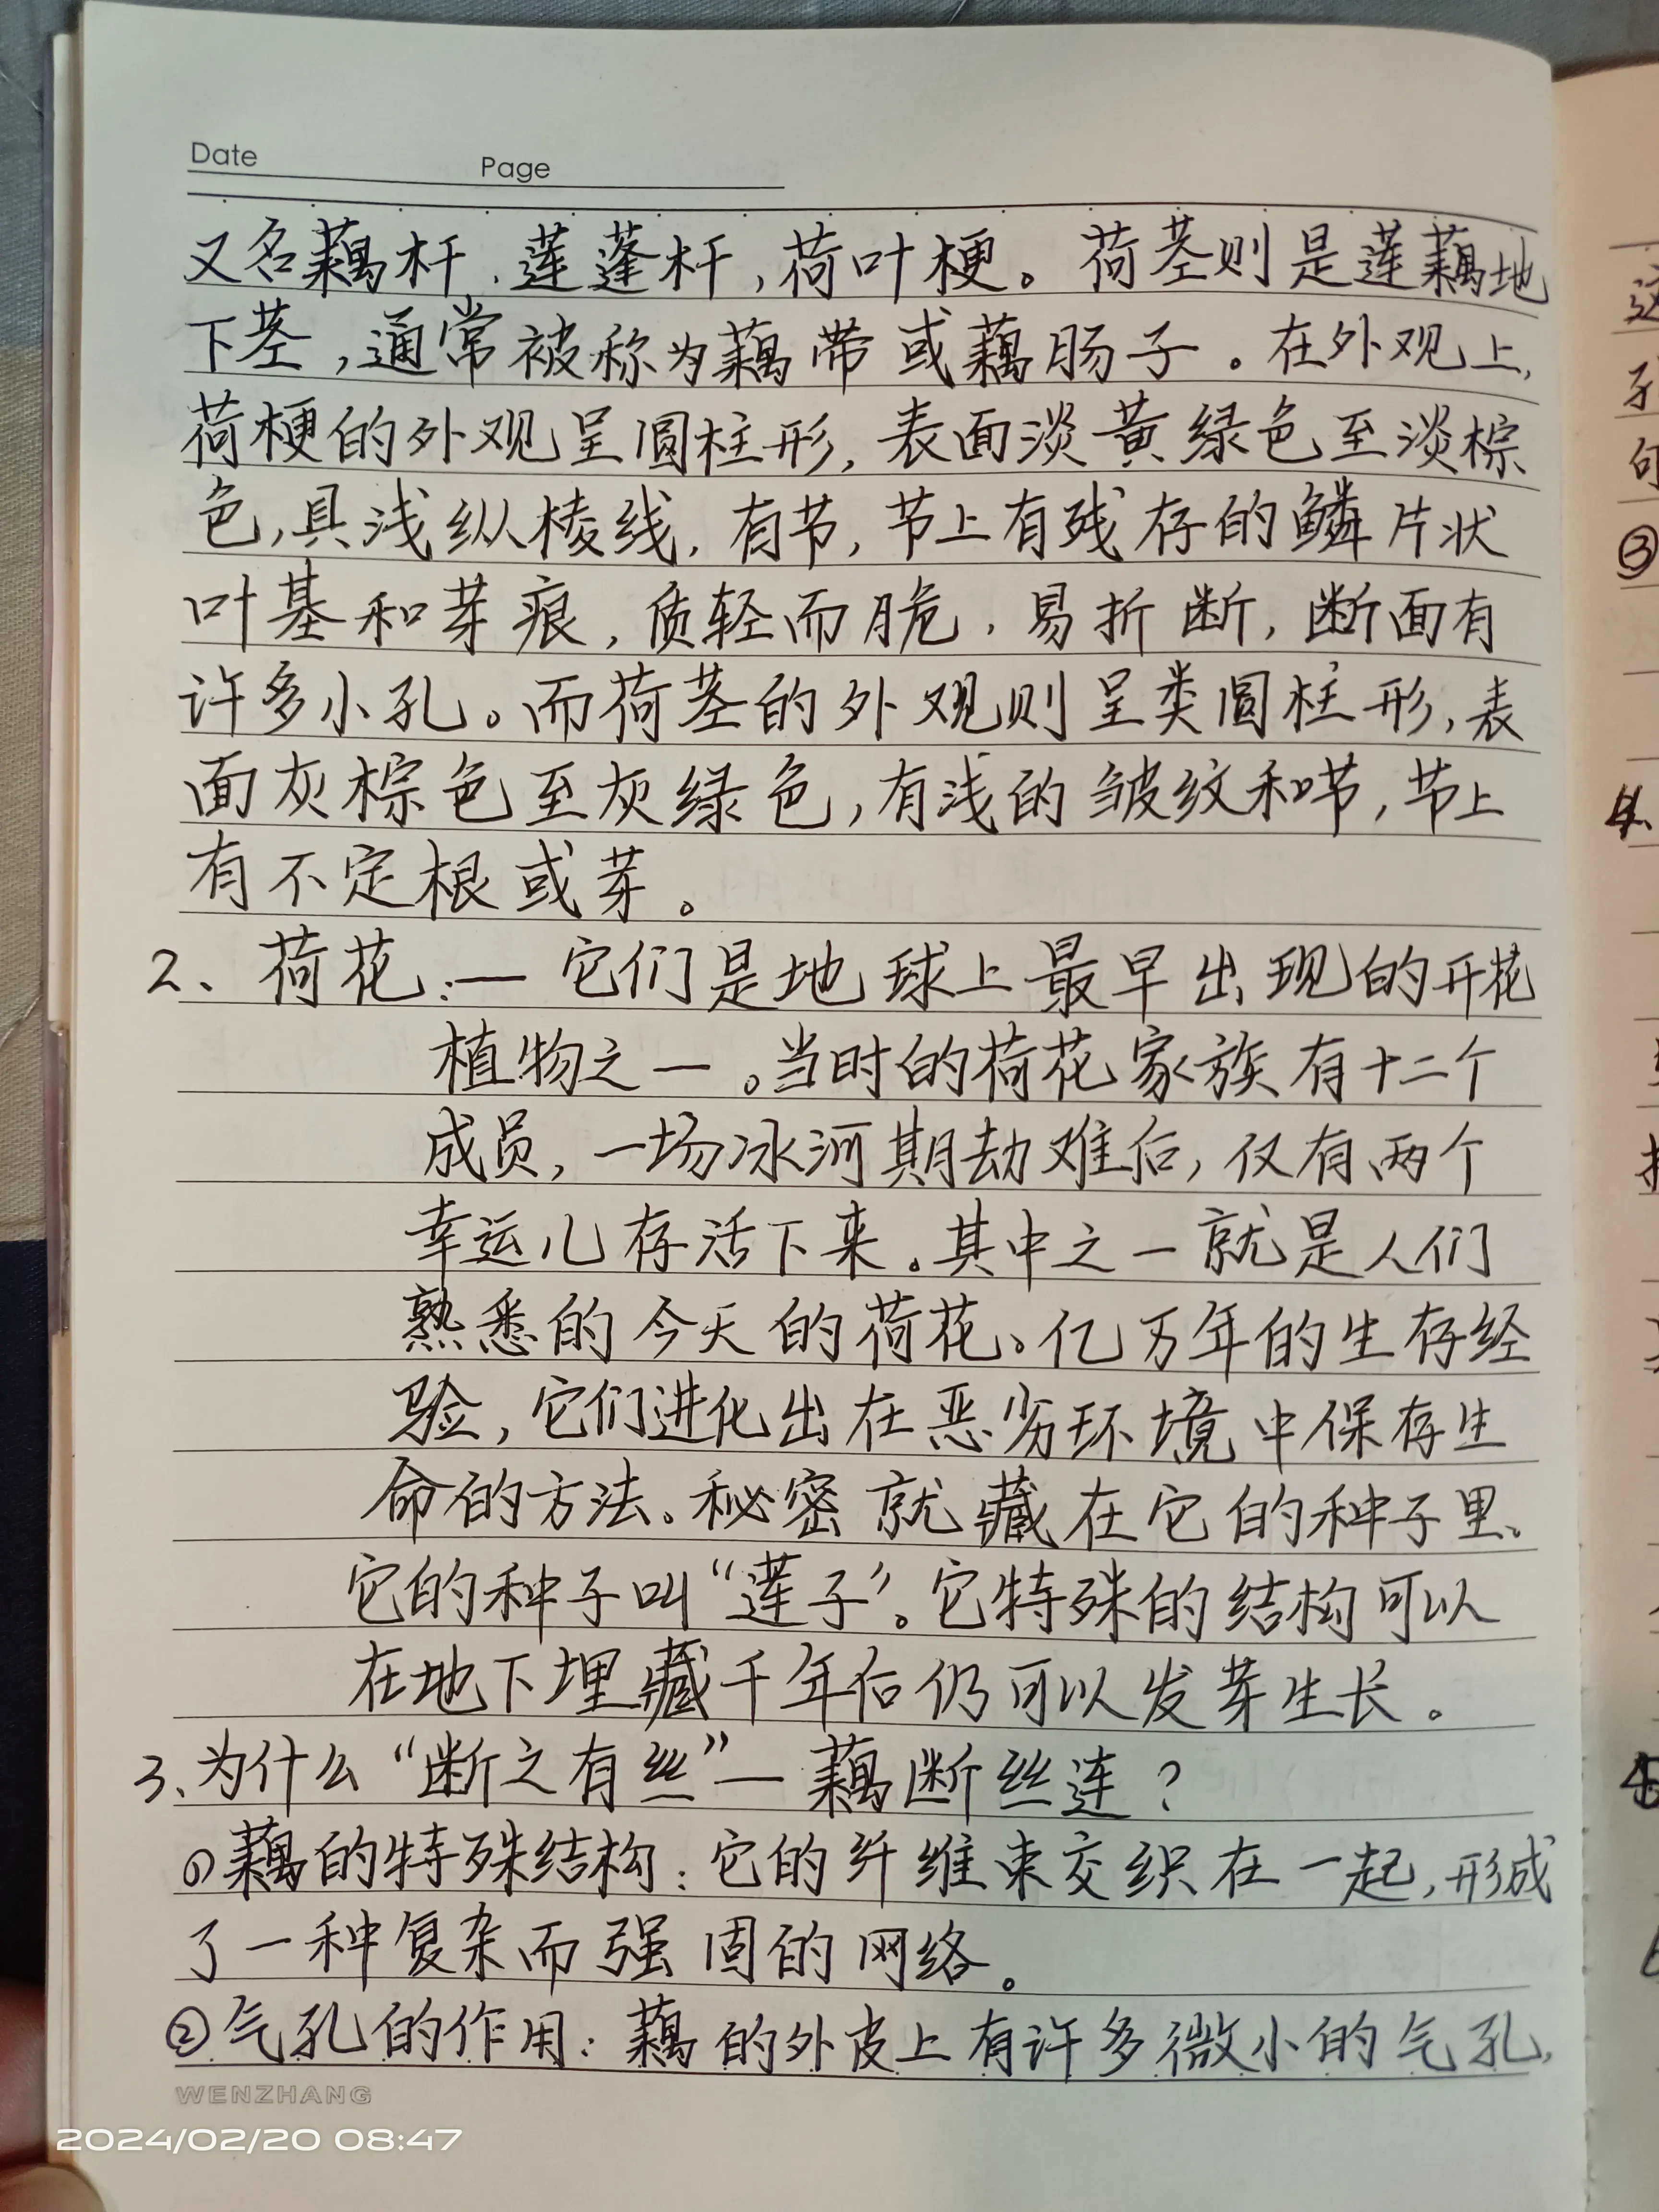 Date Page
又名藕杆、莲蓬杆，荷叶梗。荷茎则是莲藕地
下茎，通常被称为藕带或藕肠子。在外观上，
荷梗的外观呈圆柱形，表面淡黄绿色至淡棕
色，具浅纵棱线，有节，节上有残存的鳞片状
叶基和芽痕，质轻而脆，易折断，断面有
许多小孔。而荷茎的外观则呈类圆柱形，表
面灰棕色至灰绿色，有浅的皱纹和节，节上
有不定根或芽。
2、荷花：— 它们是地球上最早出现的开花
植物之一。当时的荷花家族有十二个
成员，一场冰河期劫难后，仅有两个
幸运儿存活下来。其中之一就是人们
熟悉的今天的荷花。亿万年的生存经
验，它们进化出在恶劣环境中保存生
命的方法。秘密就藏在它的种子里。
它的种子叫“莲子”。它特殊的结构可以
在地下埋藏千年后仍可以发芽生长。
3、为什么“断之有丝”— 藕断丝连？
①藕的特殊结构：它的纤维束交织在一起，形成
了一种复杂而强固的网络。
②气孔的作用：藕的外皮上有许多微小的气孔，
WENZHANG
2024/02/20 08:47
③
4、